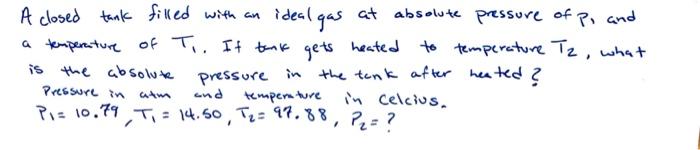 A closed tank filled with an ideal gas at absolute pressure of P₁ and
a temperature of T₁. If tank gets heated to temperature T₂, what
is the absolute pressure in the tank after heated?
Pressure in atm and temperature in Celcius.
P₁ = 10.79, T₁ = 14.50, T₂ = 97.88, P₂ = ?